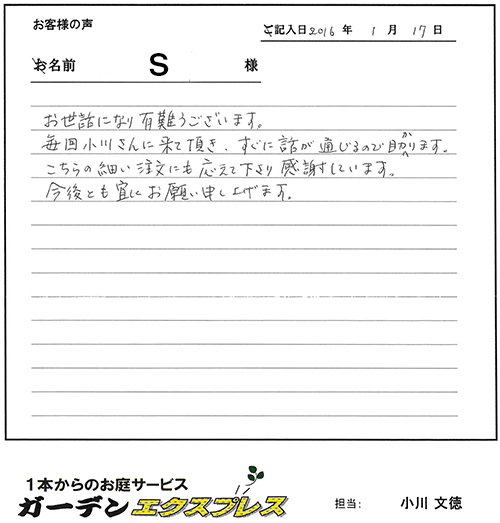 お客様の声
ご記入日2016 年 1 月 17 日
お名前 S 様
お世話になり有難うございます。
毎回小川さんに来て頂き、すぐに話が通じるので助かります。
こちらの細い注文にも応えて下さり感謝しています。
今後とも宜にお願い申し上げます。
1本からのお庭サービス
ガーデンエクスプレス
担当: 小川 文徳